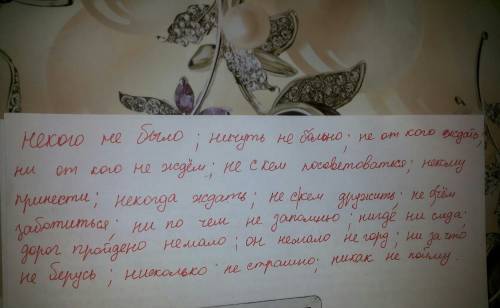 некого не было; ничуть не больно; не от кого ждать;
ни от кого не ждём; не с кем посоветоваться; некому
принести; некогда ждать; не с кем дружить; не о чём
заботиться; ни по чем не запомню; нигде ни следа;
дорог пройдено немало; он немало не горд; ни за что
не берусь; нисколько не страшно; никак не пойму.